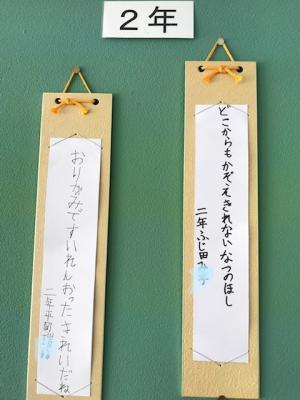 ２年
どこからもかぞえきれないなつのほし
二年ふじ田
おりがみですいれんおったきれいだね
二年平間